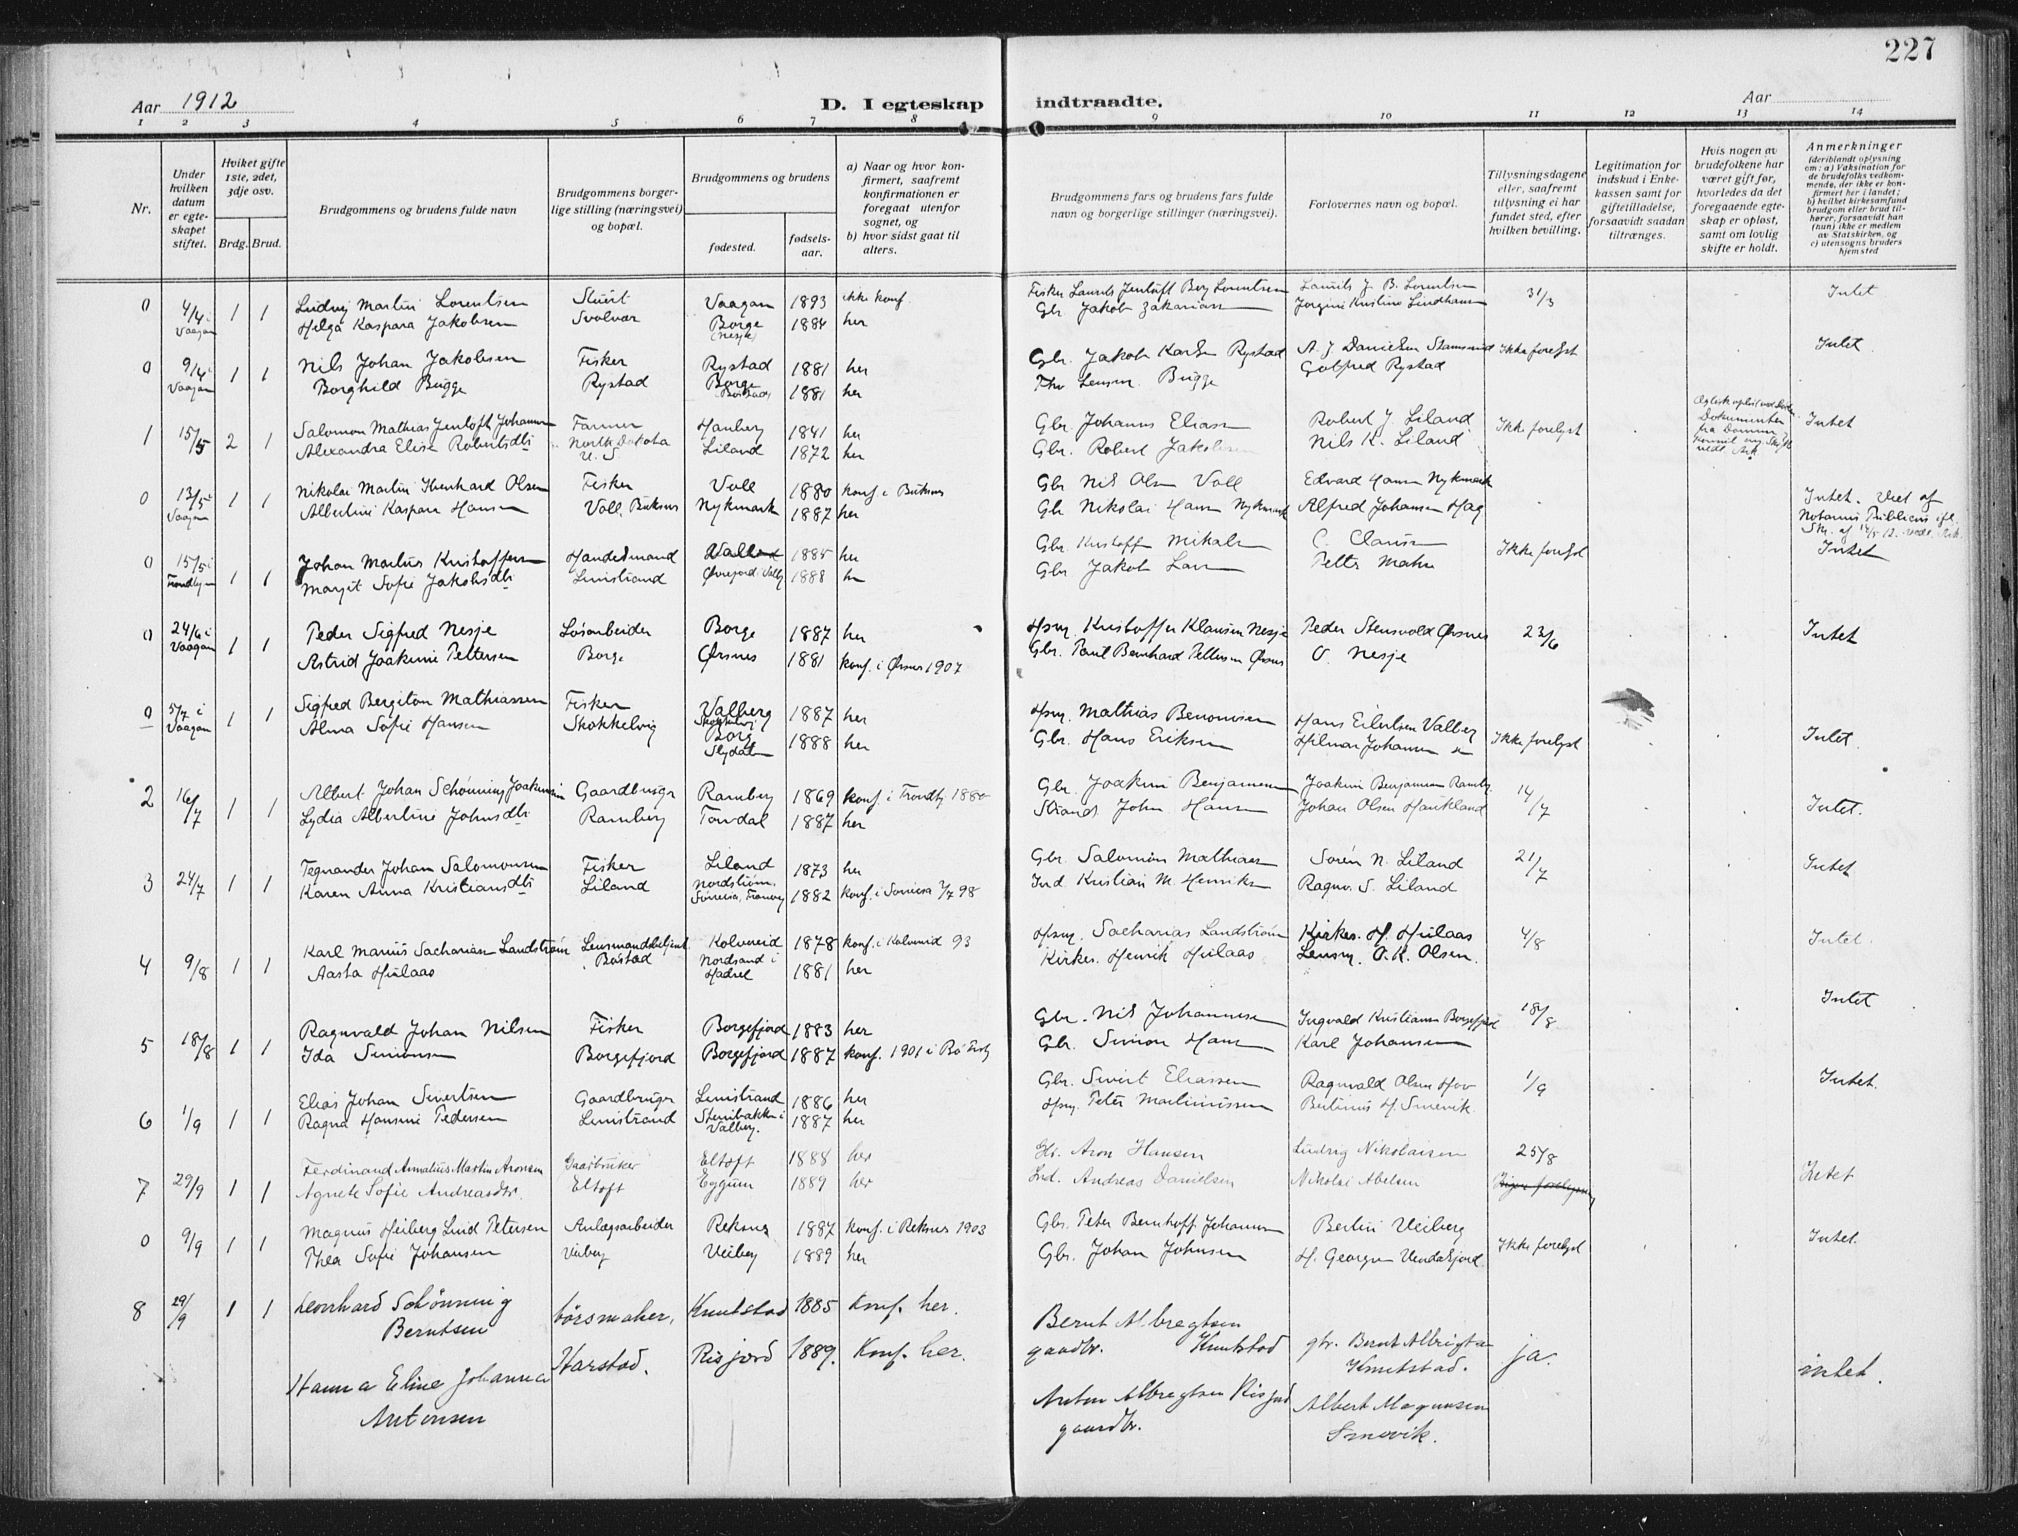 227
Aar 1912 D. I egteskap indtraadte. Aar
1 2 3 4 5 6 7 8 9 10 11 12 13 14
Nr.
Under hvilken datum er egteskapet stiftet.
Hviket gifte 1ste, 2det, 3dje osv.
Brdg. Brud.
Brudgommens og brudens fulde navn
Brudgommens borgerlige stilling (næringsvei) og bopæl.
Brudgommens og brudens
fødested. fødselsaar.
a) Naar og hvor konfirmert, saafremt konfirmationen er foregaat utenfor sognet, og
b) hvor sidst gaat til alters.
Brudgommens fars og brudens fars fulde navn og borgerlige stillinger (næringsvei).
Forlovernes navn og bopæl.
Tillysningsdagene eller, saafremt tillysning ei har fundet sted, efter hvilken bevilling.
Legitimation for indskud i Enkekassen samt for giftetilladelse, forsaavidt saadan tiltrænges.
Hvis nogen av brudefolkene har været gift før, hvorledes da det foregaaende egteskap er opløst, samt om lovlig skifte er holdt.
Anmerkninger
(deriblandt oplysning om: a) Vaksination for de brudefolks vedkommende, der ikke er konfirmert her i landet; b) hvilket kirkesamfund brudgom eller brud tilhører, forsaavidt han (hun) ikke er medlem av Statskirken, og c) utensogns bruders hjemsted
0 4/4 i Vaagan 1 1 Ludvig Martin Lorentsen Vaagan 1893 ikke konf. Fisker Laurits Jentoft Berg Lorentsen Laurits J. B. Lorentsen 31/3 Intet
Helga Kaspara Jakobsen Svolvær Borge 1884 her Gbr. Jakob Zakariassen Jorgine Kristine Lindhansen
0 9/4 i Vaagan 1 1 Nils Johan Jakobsen Fisker Rystad 1881 her Gbr. Jakob Karls Rystad A. J. Danielsen Stamsund Ikke forelyst Intet
Borghild Bugge Rystad Borge Bøstad 1881 her Bugge Gotfred Rystad
1 15/5 2 1 Salomon Mathias Jentoft Johansen Farmer Hauberg 1841 her Gbr. Johannes Eliassen Robert J. Liland Ikke forelyst Intet
Alexandra Elise Robertsdtr North Dakota U. S Liland 1872 her Gbr. Robert Jakobsen Nils K. Liland
0 13/5 i Vaagan 1 1 Nikolai Martin Evenhard Olsen Fisker Voll 1880 konf i Buksnes Gbr Nils Olsen Voll Edvard Hansen Nykmark Intet.
Albertine Kaspara Hansen Voll, Buksnes Nykmark 1887 her Gbr Nikolai Hansen Nykmark Alfred Johansen Hag
0 15/5 i Trondhjem 1 1 Johan Martius Kristoffersen Handelsmand 1885 her Gbr. Kristoff Mikals C. Clausen Ikke forelyst Intet
Margit Sofie Jakobsdtr Limstrand 1888 her Gbr Jakob Larsen Petter
0 24/6 i Vaagan 1 1 Peder Sigfred Nesje Løsarbeider Borge 1887 her Hsm. Kristoffer Klausen Nesje Peder Stensvold Ørsnes 23/6 Intet
Astrid Joakime Pettersen Borge Ørsnes 1881 konf. i Ørsnes 1907 Gbr. Paul Bernhard Pettersen Ørsnes O. Nesje
0 5/7 i Vaagan 1 1 Sigfred Bergiton Mathiassen Fisker Valberg Skokkelvig 1887 her Hsm. Mathias Benonisen Hans Eilertsen Valberg
Alma Sofie Hansen Skokkelvig Borg 1888 her Gbr. Hans Eriksen Hilmar Johansen Ikke forelyst Intet.
2 16/7 1 1 Albert Johan Schønning Joakimsen Gaardbruger Ramberg 1869 konf. i Trondhj. Gbr. Joakim Benjaminsen Joakim Benjaminsen Ramberg 14/7 Intet.
Lydia Albertine Johnsdtr Ramberg Torvdal 1887 her Strands. John Hansen Johan Olsen Haukland
3 24/7 1 1 Tegnander Johan Salomonsen Fisker Liland 1873 her Gbr. Salomon Mathiassen Soren N. Liland 21/7 Intet
Karen Anna Kristiansdtr Liland Nordstrøm, 1882 konf. i Sørreisa 3/7 98 Ind. Kristian M. Henriksen Ragnv. S. Liland
4 9/8 1 1 Karl Marius Sacharias Landstrøm Lensmandsbetjent Kolvereid 1878 konf. i Kolvereid 93 Hsm. Sacharias Landstrøm Kirkes. H. Hulaas 4/8 Intet.
Aasta Hulaas Bøstad Nordsand i Hadsel 1881 her Kirkes. Henrik Hulaas Lensm. O. K. Olsen.
5 18/8 1 1 Ragnvald Johan Nilsen Fisker Borgefjord 1883 her Gbr. Nils Johannesen Ingvald Kristiansen Borgefjord 18/8 Intet
Ida Simonsen Borgefjord Borgefjord 1887 konf. 1901 i Bø Gbr. Simon Hansen Karl Johansen
6 1/9 1 1 Elias Johan Sivertsen Gaardbruger Limstrand 1886 her Gbr. Sivert Eliassen Ragnvald Olsen Hov 1/9 Intet.
Ragna Hansine Pedersen Limstrand Stenbakken i Valberg. 1887 her Hsm. Peter Martinussen Bertinus H. Smevik
7 29/9 1 1 Ferdinand Armatius Martin Aronsen Gaarbruker Eltoft 1888 her Gbr. Aron Hansen Ludvig Nikolaisen 25/8 Intet
Agnete Sofie Andreasdtr. Eltoft Eggum 1889 her Ind. Andreas Danielsen Nikolai Abelsen
0 9/9 1 1 Magnus Heiberg Lind Petersen Anlægsarbeider Reknes 1887 konf. i Reknes 1903 Gbr. Peter Bernhoff Johansen Berlin Veiberg Intet.
Thea Sofie Johansen Veiberg Veiberg 1889 her Gbr. Johan Johnsen H. Georgsen Ikke forelyst
8 29/9 1 1 Leonhard Schønning Berntsen børsmaker, Knutstad 1885 Konf. her. Bernt Albregtsen gaardbr. Knutstad gbr. Bernt Albrigtsen Knutstad. ja. intet.
Hanna Eline Johanna Antonsen Harstad. Risjord 1889. Konf. her. Anton Albregtsen Risjord gaardbr. Albert Magnusen Smevik.